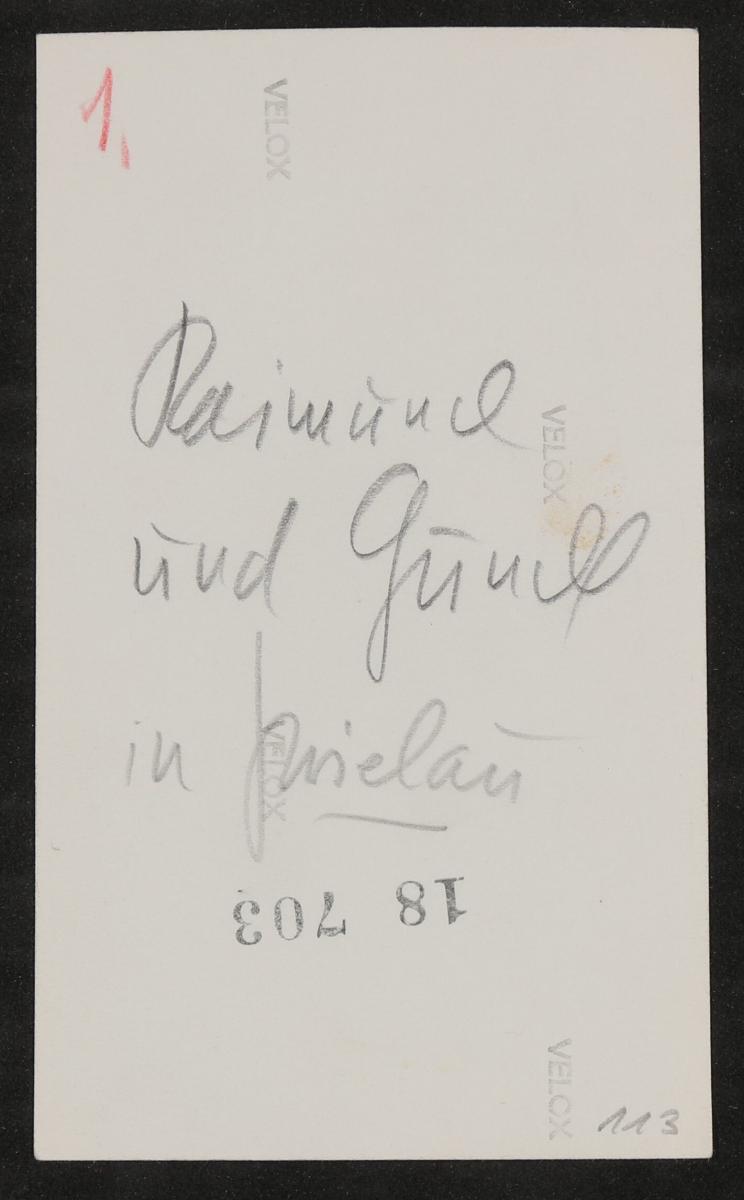 1,
VELOX
Raimund
VELOX
und Gundl
in
VELOX
18 703
VELOX
113